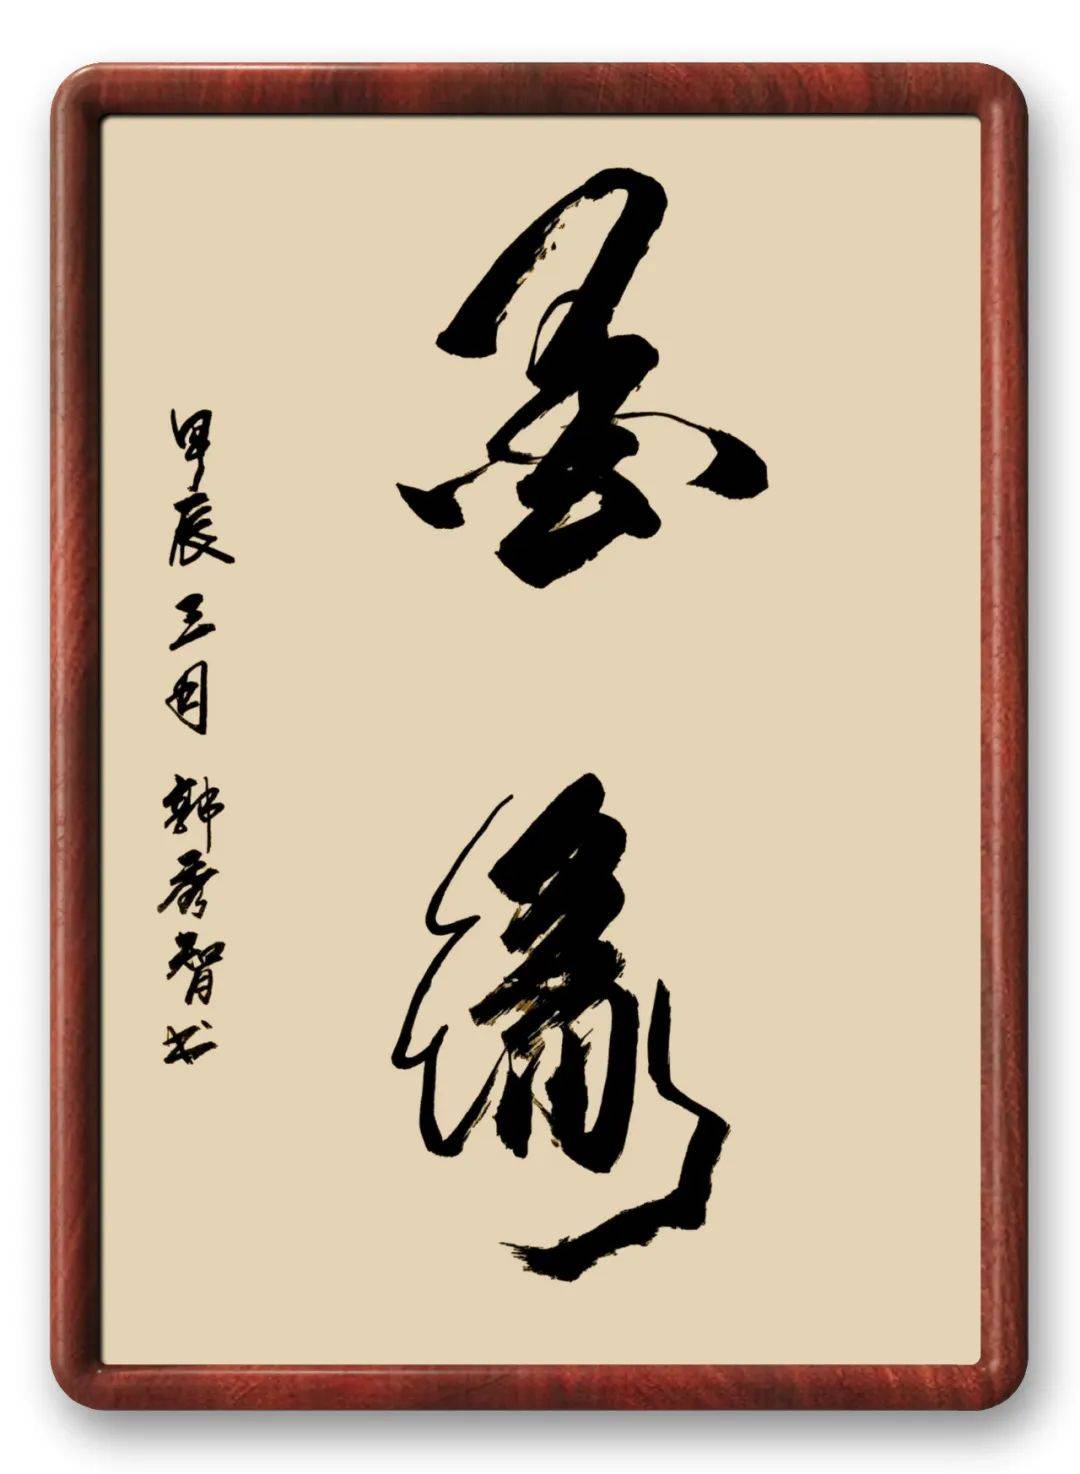 墨缘
甲辰三月 韩秀智书